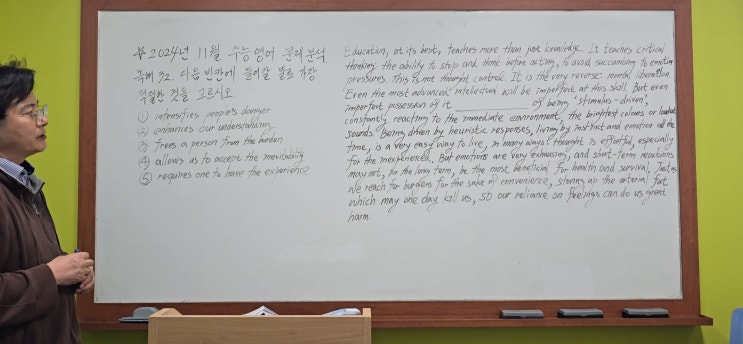 ☆ 2024년 11월 수능 영어 문제 분석
문제 32. 다음 빈칸에 들어갈 말로 가장
적절한 것을 고르시오
① intensifies people's danger
② enhances our understanding
③ frees a person from the burden
④ allows us to accept the inevitability
⑤ requires one to have the experience
Education, at its best, teaches more than just knowledge. It teaches critical
thinking: the ability to stop and think before acting, to avoid succumbing to emotional
pressures. This is not thought control. It is the very reverse: mental liberation.
Even the most advanced intellectual will be imperfect at this skill. But even
imperfect possession of it ________ of being 'stimulus-driven',
constantly reacting to the immediate environment, the brightest colours or loudest
sounds. Being driven by heuristic responses, living by instinct and emotion all the
time, is a very easy way to live, in many ways: thought is effortful, especially
for the inexperienced. But emotions are very exhausting, and short-term reactions
may not, in the long term, be the most beneficial for health and survival. Just as
we reach for burgers for the sake of convenience, storing up the arterial fat
which may one day kill us, so our reliance on feelings can do us great
harm.